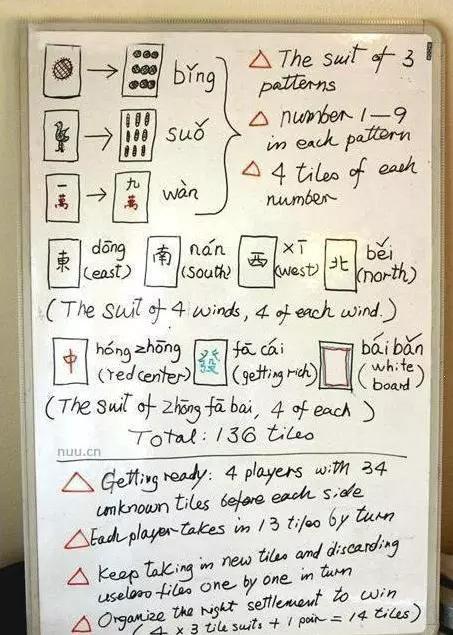 bǐng
suǒ
一萬 九萬 wàn
△ The suit of 3
patterns
△ number 1—9
in each pattern
△ 4 tiles of each
number
東 dōng (east) 南 nán (south) 西 xī (west) 北 běi (north)
(The suit of 4 winds, 4 of each wind.)
中 hóng zhōng (red center) 發 fā cái (getting rich) bái bǎn (white board)
(The suit of zhōng fā bai, 4 of each)
Total: 136 tiles
nuu.cn
△ Getting ready: 4 players with 34
unknown tiles before each side
△ Each player takes in 13 tiles by turn
△ Keep taking in new tiles and discarding
useless tiles one by one in turn
△ Organize the right settlement to win
(4 x 3 tile suits + 1 pair = 14 tiles)